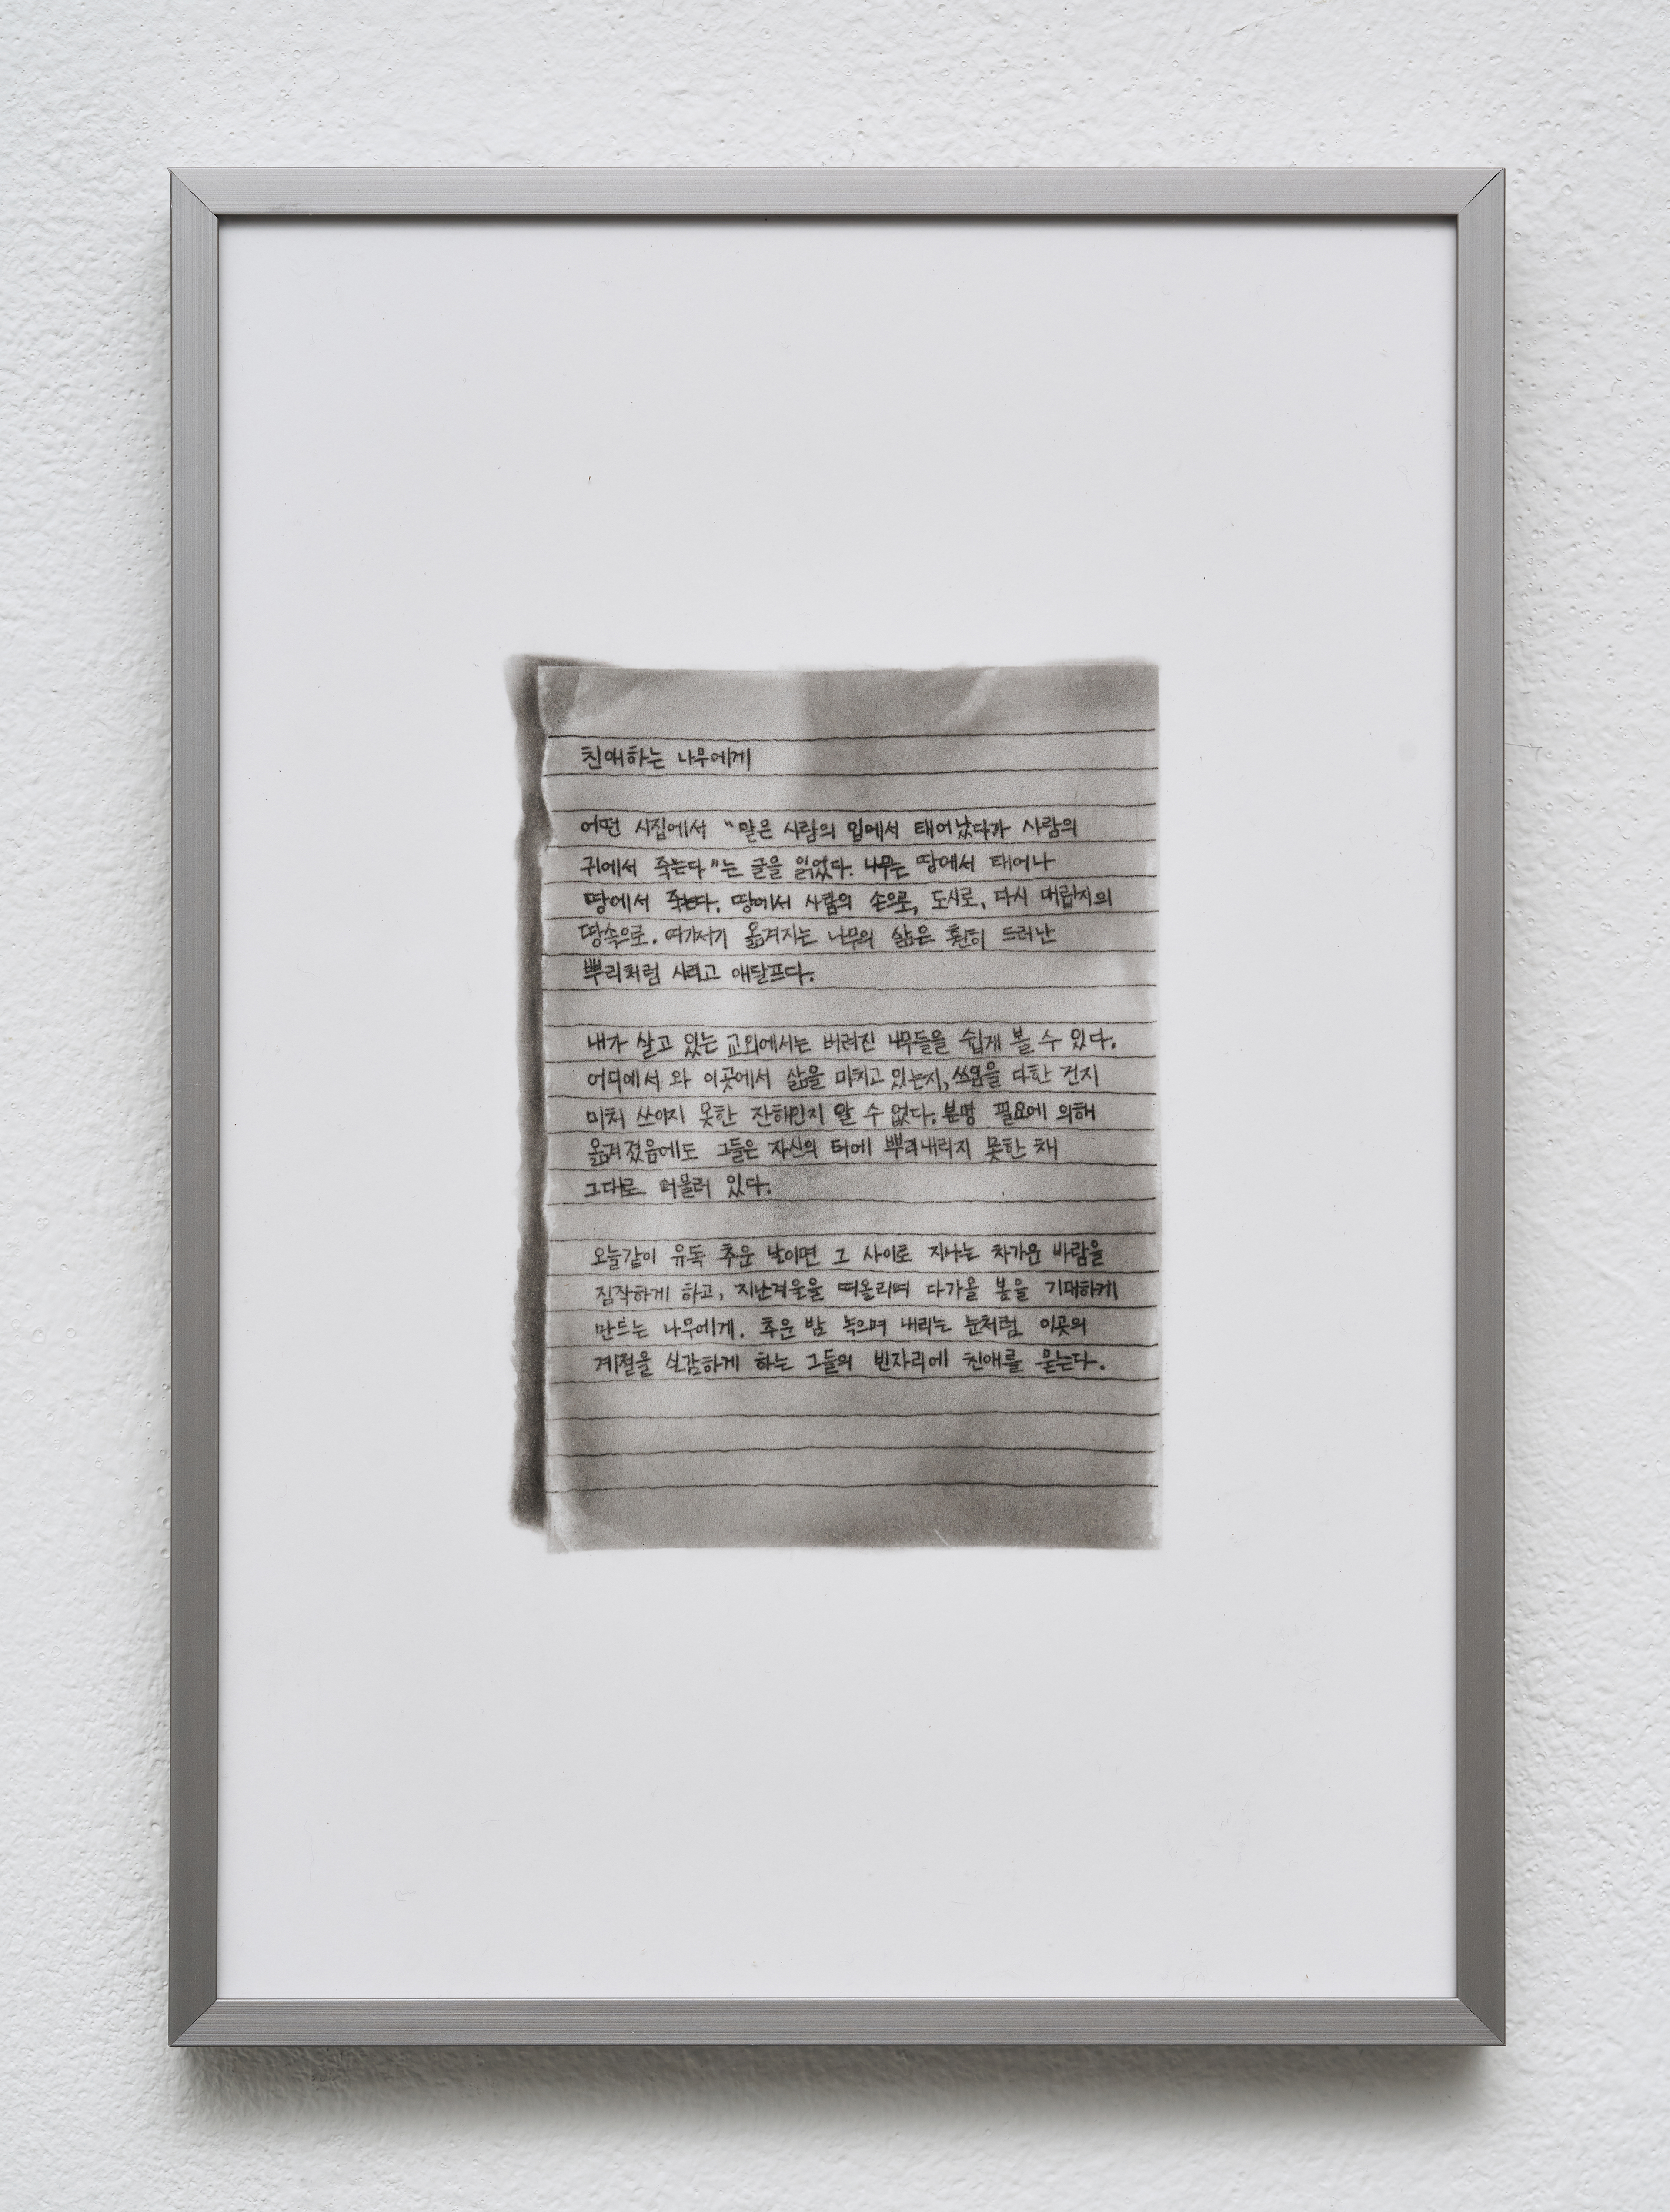 친애하는 나무에게
어떤 시집에서 "말은 사람의 입에서 태어났다가 사람의
귀에서 죽는다"는 글을 읽었다. 나무는 땅에서 태어나
땅에서 죽는다. 땅에서 사람의 손으로, 도시로, 다시 매립지의
땅속으로. 여기저기 옮겨지는 나무의 삶은 훤히 드러난
뿌리처럼 시리고 애달프다.
내가 살고 있는 교외에서는 버려진 나무들을 쉽게 볼 수 있다.
어디에서 와 이곳에서 삶을 마치고 있는지, 쓰임을 다한 건지
미처 쓰이지 못한 잔해인지 알 수 없다. 분명 필요에 의해
옮겨졌음에도 그들은 자신의 터에 뿌리내리지 못한 채
그대로 머물러 있다.
오늘같이 유독 추운 날이면 그 사이로 지나는 차가운 바람을
짐작하게 하고, 지난겨울을 떠올리며 다가올 봄을 기대하게
만드는 나무에게. 추운 밤 녹으며 내리는 눈처럼 이곳의
계절을 실감하게 하는 그들의 빈자리에 친애를 묻는다.